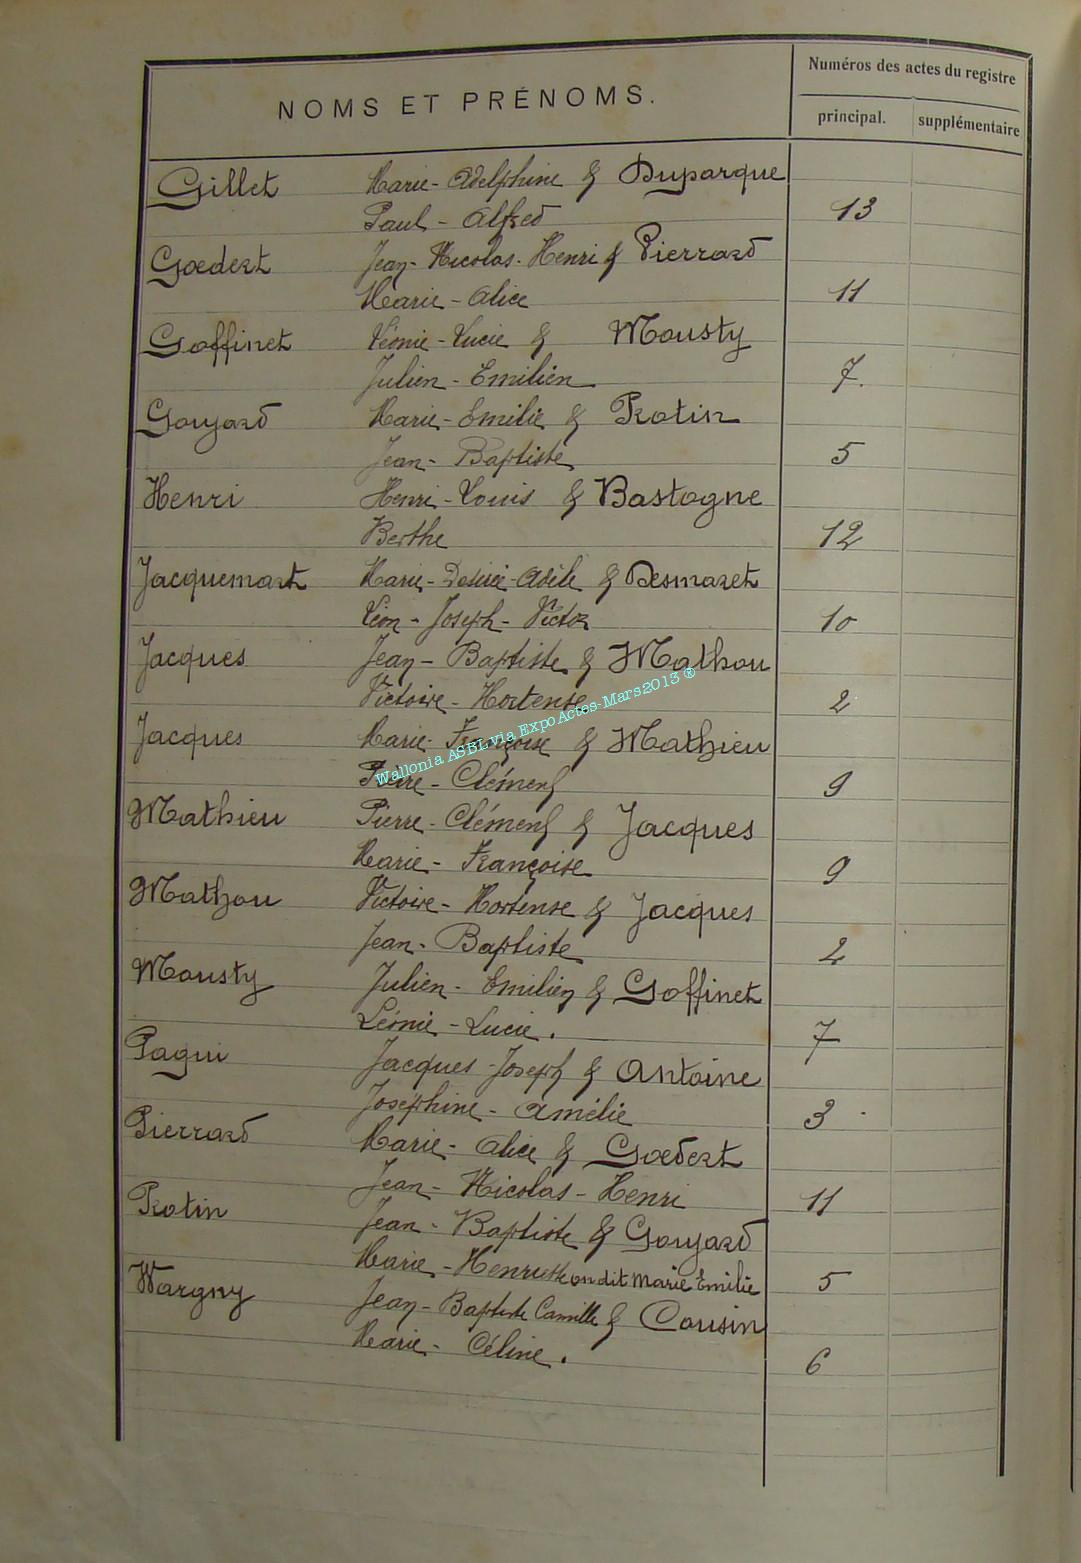 NOMS ET PRÉNOMS.
Numéros des actes du registre
principal. supplémentaire
Gillet Marie-Adelphine & Duparque
Paul-Alfred 13
Gœdert Jean-Nicolas-Henri & Pierrard
Marie-Alice 11
Goffinet Léonie-Lucie & Mousty
Julien-Emilien 7.
Goujard Marie-Emilie & Rotin
Jean-Baptiste 5
Henri Henri-Louis & Bastogne
Berthe 12
Jacquemart Marie-Désirée-Adèle & Desmaret
Léon-Joseph-Victor 10
Jacques Jean-Baptiste & Mathou
Victoire-Hortense 2
Jacques Marie-Françoise & Mathieu
Pierre-Clément 9
Wallonia ASBL via ExpoActes-Mars2013®
Mathieu Pierre-Clément & Jacques
Marie-Françoise 9
Mathou Victoire-Hortense & Jacques
Jean-Baptiste 2
Mousty Julien-Emilien & Goffinet
Léonie-Lucie. 7
Pagui Jacques-Joseph & Antoine
Joséphine-Amélie 3
Pierrard Marie-Alice & Gœdert
Jean-Nicolas-Henri 11
Rotin Jean-Baptiste & Goujard
Marie-Henriette ou dit Marie Emilie 5
Wargny Jean-Baptiste Camille & Cousin
Marie-Céline. 6